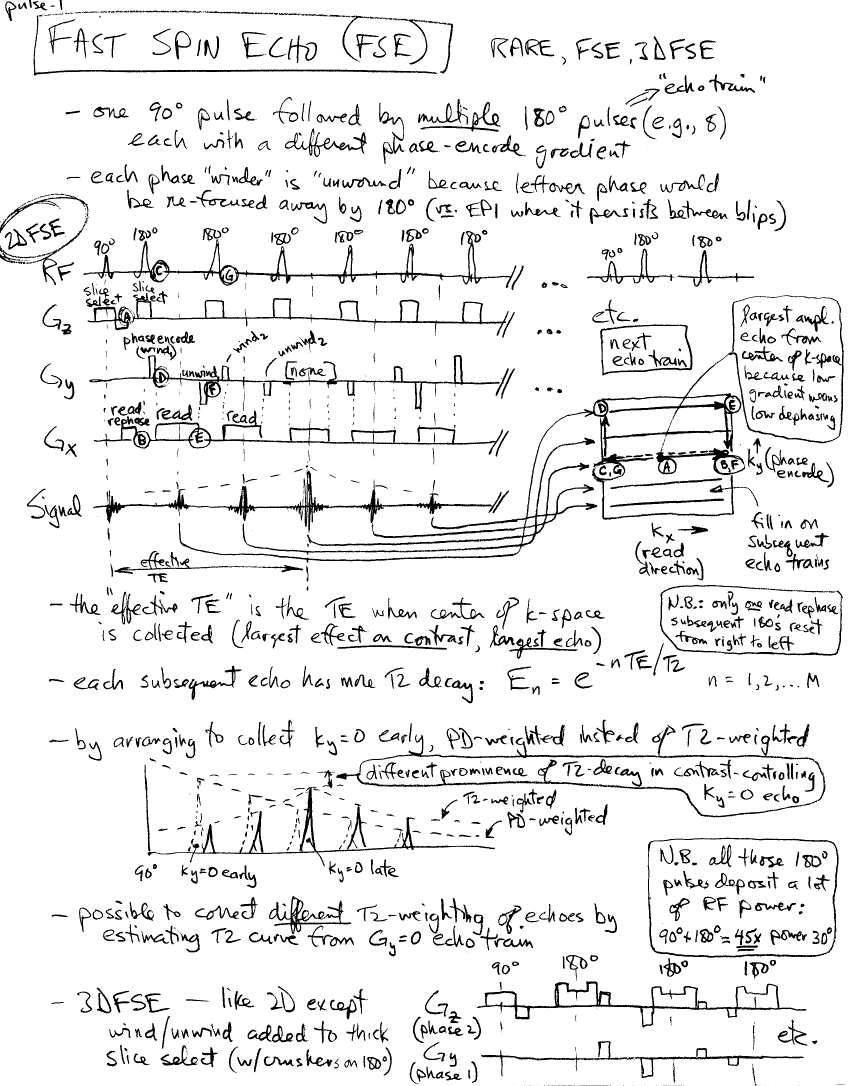 pulse-1
FAST SPIN ECHO (FSE)
RARE, FSE, 3DFSE
"echo train"
- one 90° pulse followed by multiple 180° pulses (e.g., 8)
each with a different phase-encode gradient
- each phase "winder" is "unwound" because leftover phase would
be re-focused away by 180° (vs. EPI where it persists between blips)
2DFSE
90° 180° 180° 180° 180° 180° 180°
90° 180° 180°
RF
C
G
...
slice select
slice select
Gz
A
...
etc.
next
echo train
largest ampl.
echo from
center of k-space
because low
gradient means
low dephasing
phase encode
(wind1)
unwind
wind2
unwind2
[none]
Gy
D
F
...
read rephase
read
read
Gx
B
E
D
E
C,G
A
B,F
ky (phase
encode)
Signal
kx →
(read
direction)
fill in on
subsequent
echo trains
effective
TE
- the "effective TE" is the TE when center of k-space
is collected (largest effect on contrast, largest echo)
N.B.: only one read rephase
subsequent 180's reset
from right to left
- each subsequent echo has more T2 decay: En = e^-nTE/T2
n = 1,2,... M
- by arranging to collect ky=0 early, PD-weighted instead of T2-weighted
different prominence of T2-decay in contrast-controlling
ky=0 echo
T2-weighted
PD-weighted
90°
ky=0 early
ky=0 late
N.B. all those 180°
pulses deposit a lot
of RF power:
90°+180° = 45x power 30°
- possible to correct different T2-weighting of echoes by
estimating T2 curve from Gy=0 echo train
- 3DFSE — like 2D except
wind/unwind added to thick
slice select (w/crushers on 180°)
90° 180° 180° 180°
Gz
(phase 2)
Gy
(phase 1)
etc.